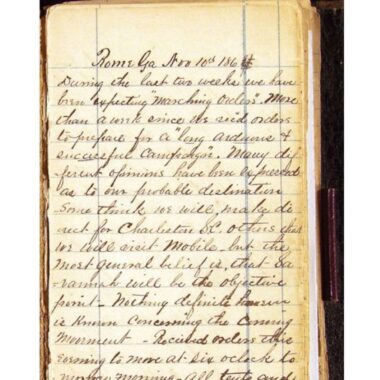 Rome Ga Nov 10th 1864
During the last two weeks we have
been "expecting "Marching Orders". More
than a week since we recd orders
to prepare for a "long arduous &
successful Campaign". Many dif
ferent opinions have been expressed
as to our probable destination
Some think we will make di
rect for Charleston S.C. others that
we will visit Mobile, but the
most general belief is, that Sa
-vannah will be the objective
point - Nothing definite however
is known concerning the Coming
Movement - Recived orders this
evening to move at six oclock to
morrow morning - All tents and